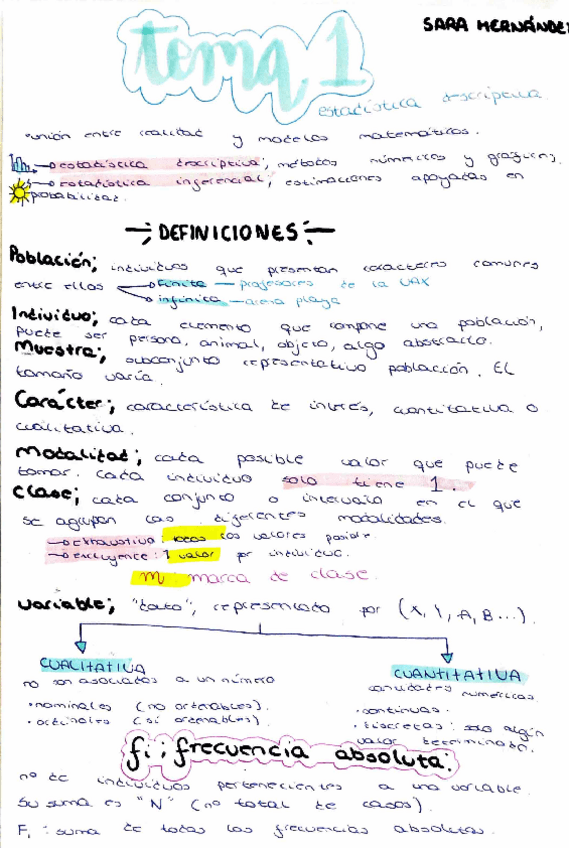 SARA HERNÁNDEZ
tema 1
estadística descriptiva.
·unión entre realidad y modelos matemáticos.
→ estadística descriptiva; métodos númericos y gráficos.
→ estadística inferencial; estimaciones apoyadas en
probabilidad.
DEFINICIONES
Población; individuos que presentan caracteres comunes
entre ellos → finita — profesores de la UAX
→ infinita — arena playa
Individuo; cada elemento que compone una población,
puede ser persona, animal, objeto, algo abstracto.
Muestra; subconjunto representativo población. El
tamaño varía.
Carácter; característica de interés, cuantitativa o
cualitativa.
Modalidad; cada posible valor que puede
tomar. Cada individuo solo tiene 1.
Clase; cada conjunto o intervalo en el que
se agrupan las diferentes modalidades.
→ exhaustiva: todos los valores posible.
→ excluyence: 1 valor por individuo.
m: marca de clase.
Variable; "dato"; representado por (X, Y, A, B...).
CUALITATIVA
no son asociados a un número
·nominales (no ordenables).
·ordinales (sí ordenables).
CUANTITATIVA
cantidades numéricas
·continuas.
·discretas: solo algún
valor determinado.
fi; frecuencia absoluta:
nº de individuos pertenecientes a una variable.
Su suma es "N" (nº total de casos).
Fi: suma de todas las frecuencias absolutas.